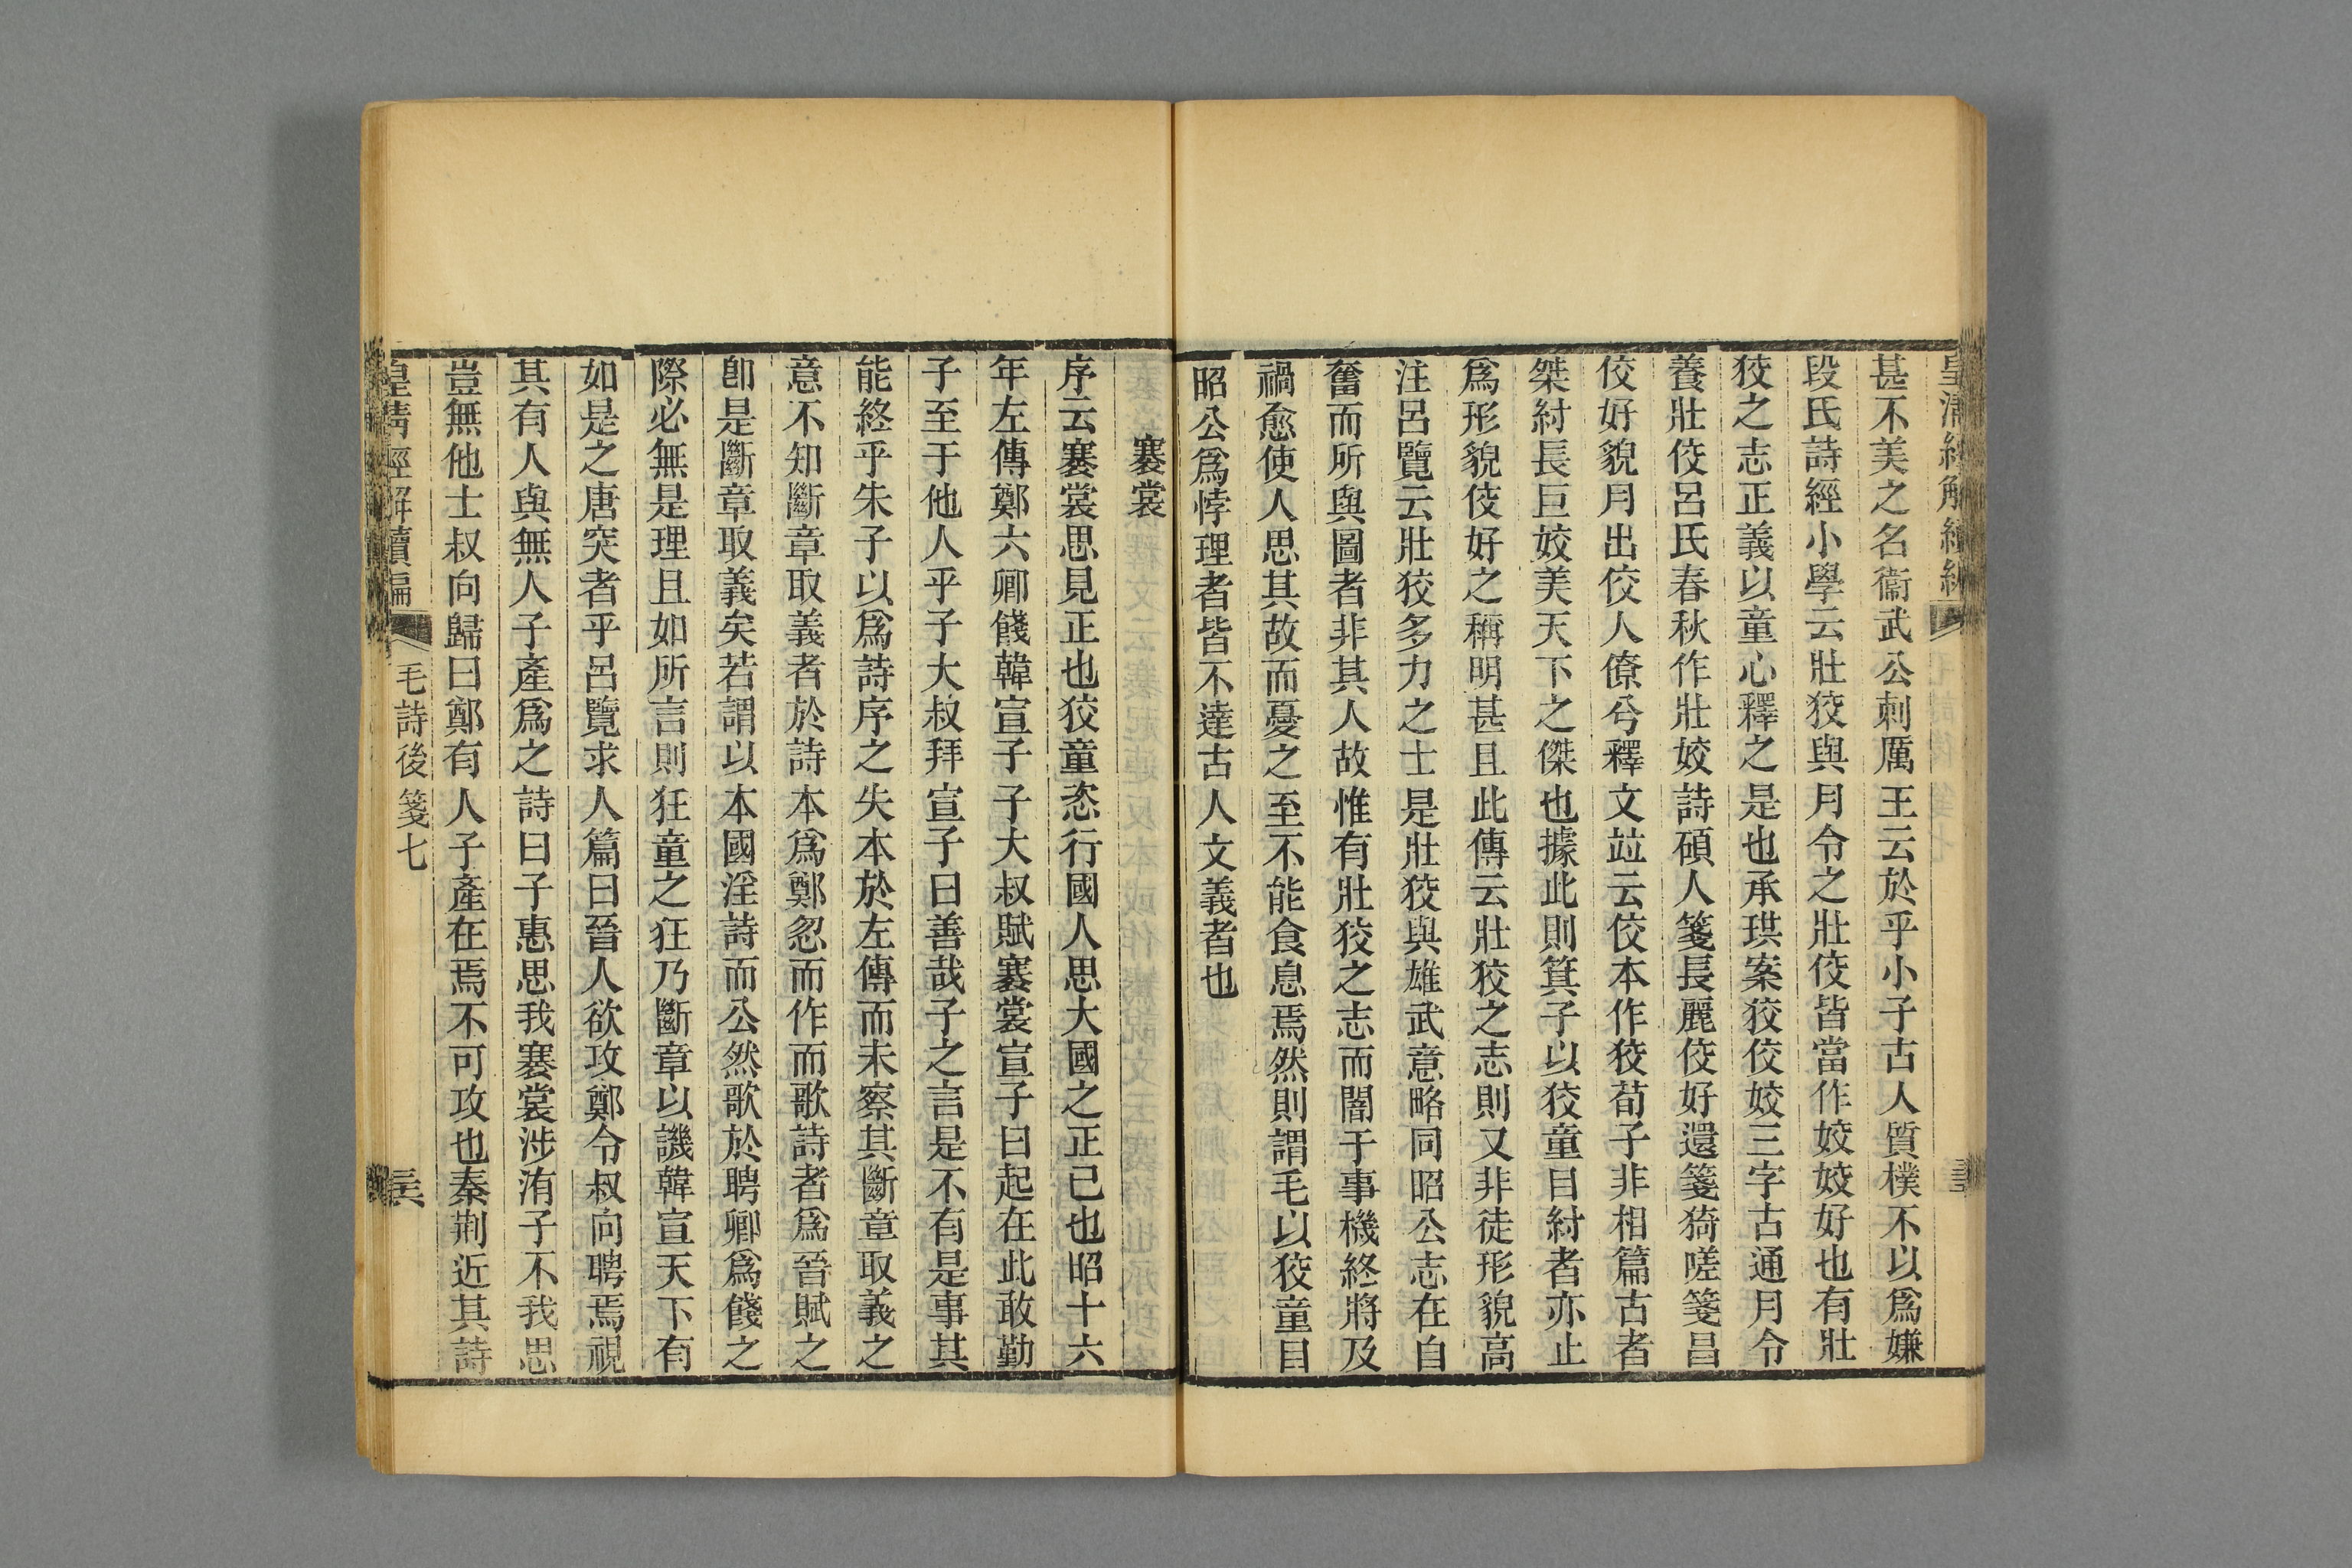 甚不美之名衞武公刺厲王云於乎小子古人質樸不以爲嫌
段氏詩經小學云壯狡與月令之壯佼皆當作姣姣好也有壯
狡之志正義以童心釋之是也承珙案狡佼姣三字古通月令
養壯佼呂氏春秋作壯姣詩碩人箋長麗佼好還箋猗嗟箋昌
佼好貌月出佼人僚兮釋文竝云佼本作狡荀子非相篇古者
桀紂長巨姣美天下之傑也據此則箕子以狡童目紂者亦止
爲形貌佼好之稱明甚且此傳云壯狡之志則又非徒形貌高
注呂覽云壯狡多力之士是壯狡與雄武意略同昭公志在自
奮而所與圖者非其人故惟有壯狡之志而闇于事機終將及
禍愈使人思其故而憂之至不能食息焉然則謂毛以狡童目
昭公爲悖理者皆不達古人文義者也
褰裳
序云褰裳思見正也狡童恣行國人思大國之正己也昭十六
年左傳鄭六卿餞韓宣子子大叔賦褰裳宣子曰起在此敢勤
子至于他人乎子大叔拜宣子曰善哉子之言是不有是事其
能終乎朱子以爲詩序之失本於左傳而未察其斷章取義之
意不知斷章取義者於詩本爲鄭忽而作而歌詩者爲晉賦之
卽是斷章取義矣若謂以本國淫詩而公然歌於聘卿爲餞之
際必無是理且如所言則狂童之狂乃斷章以譏韓宣天下有
如是之唐突者乎呂覽求人篇曰晉人欲攻鄭令叔向聘焉視
其有人與無人子產爲之詩曰子惠思我褰裳涉洧子不我思
豈無他士叔向歸曰鄭有人子產在焉不可攻也秦荆近其詩
皇清經解續編
毛詩後箋七